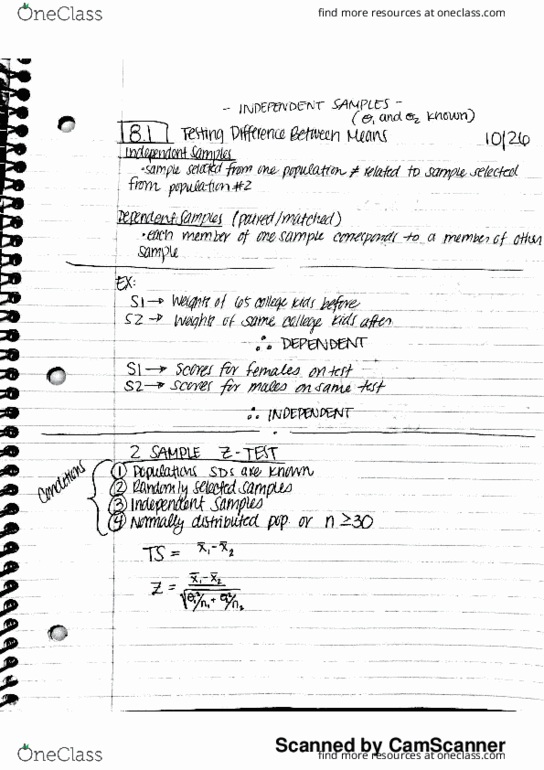 OneClass
find more resources at oneclass.com
- INDEPENDENT SAMPLES -
(σ₁ and σ₂ known)
8.1 Testing Difference Between Means 10/26
Independent Samples
• sample selected from one population ≠ related to sample selected
from population #2
Dependent Samples (paired/matched)
• each member of one sample corresponds to a member of other
sample
EX:
S1 → Weights of 65 college kids before
S2 → Weights of same college kids after
∴ DEPENDENT
S1 → Scores for females on test
S2 → Scores for males on same test
∴ INDEPENDENT
2 SAMPLE Z-TEST
Conditions
① Populations SDs are known
② Randomly selected samples
③ Independent Samples
④ Normally distributed pop or n ≥ 30
TS = x̄₁ - x̄₂
Z = (x̄₁ - x̄₂) / √(σ₁²/n₁ + σ₂²/n₂)
Scanned by CamScanner
OneClass
find more resources at oneclass.com